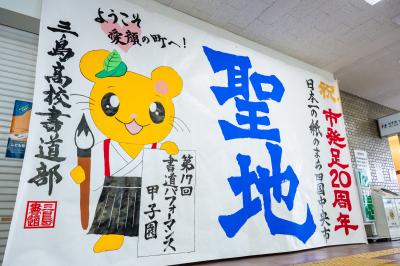 祝 市発足20周年
日本一の紙のまち四国中央市
聖地
ようこそ
愛顔の町へ!
第17回
書道パフォーマンス
甲子園
三島高校書道部